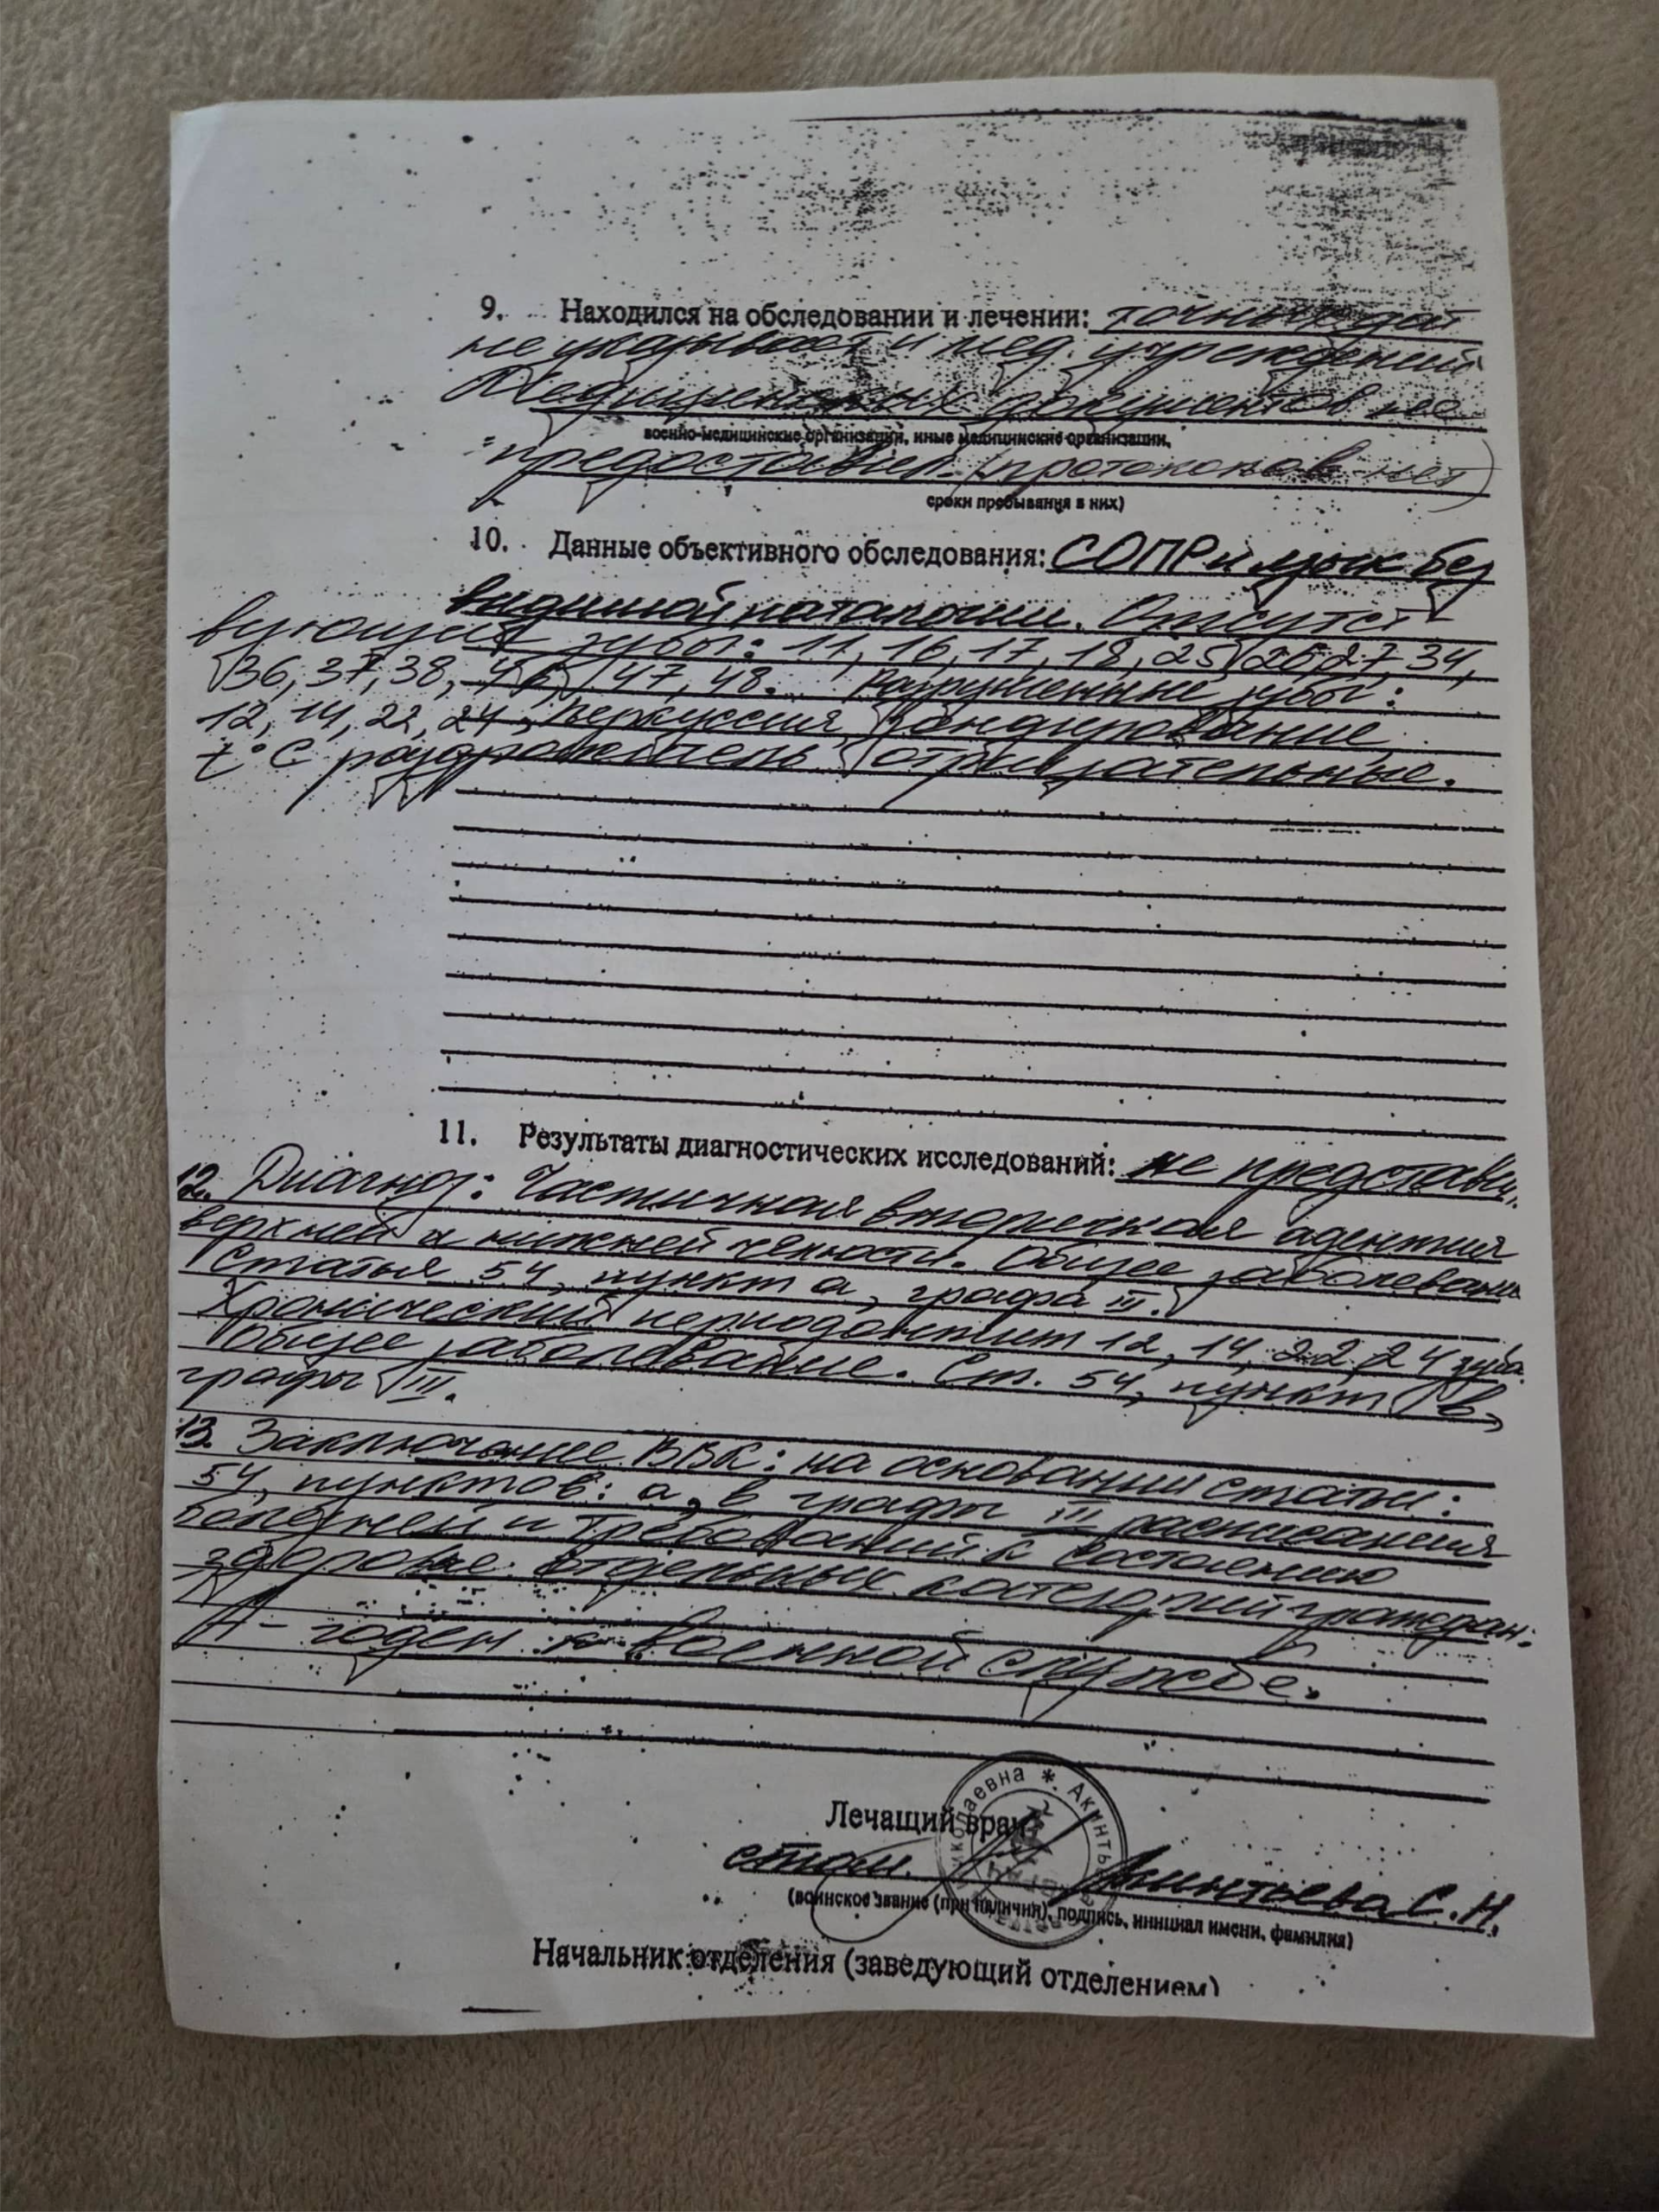 9. Находился на обследовании и лечении: точных дат
не указывает и мед. учреждений
Медицинских документов не
военно-медицинские организации, иные медицинские организации,
предоставил. (протоколов нет)
сроки пребывания в них)
10. Данные объективного обследования: СОПР и язык без
видимой патологии. Отсутст-
вующие зубы: 11, 16, 17, 18, 25, 26, 27, 34,
36, 37, 38, 46, 47, 48. Разрушенные зубы:
12, 14, 22, 24, перкуссия, зондирование,
t°C раздражитель отрицательные.
11. Результаты диагностических исследований: не представл.
12. Диагноз: Частичная вторичная адентия
верхней и нижней челюсти. Общее заболевание
Статья 54, пункт а, графа III.
Хронический периодонтит 12, 14, 22, 24 зуба
Общее заболевание. Ст. 54, пункт в,
графы III.
13. Заключение ВВК: на основании статьи:
54, пунктов: а, в графы III расписания
болезней и требований к состоянию
здоровья отдельных категорий граждан:
А - годен к военной службе.
Лечащий врач
стом. Акинтьева С.Н.
(воинское звание (при наличии), подпись, инициал имени, фамилия)
Начальник отделения (заведующий отделением)